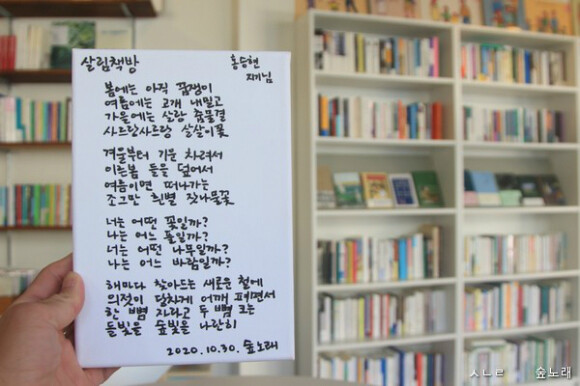 살림책방
홍승현
지기님
봄에는 아직 꼼쟁이
여름에는 고개 내밀고
가을에는 살랑 춤물결
사르랑사르랑 살살이꽃
겨울부터 기운 차려서
이른봄 들을 덮어서
여름이면 떠나가는
조그만 흰별 잣나물꽃
너는 어떤 꽃일까?
나는 어느 풀일까?
너는 어떤 나무일까?
나는 어느 바람일까?
해마다 찾아드는 새로운 철에
의젓이 담차게 어깨 펴면서
한 뼘 자라고 두 뼘 크는
들빛을 숲빛을 나란히
2020.10.30. 숲노래
ㅅㄴㄹ 숲노래